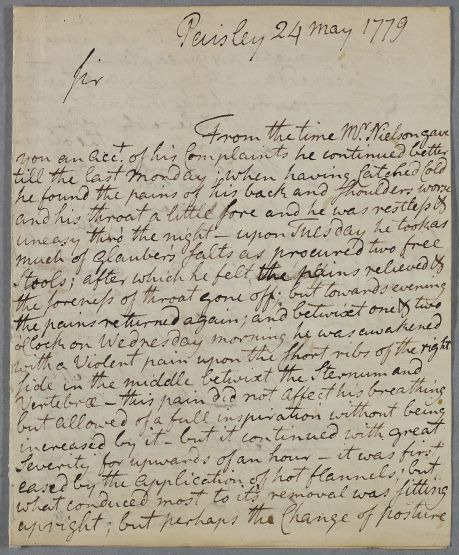 Paisley 24 May 1779
Sir
From the time Mr. Nielson gave
you an acct. of his Complaints he continued better
till the Last Monday; when having Catched Cold
he found the pains of his back and shoulders worse
and his throat a little sore and he was restless &
uneasy thro' the night – upon Tuesday he took as
much of Glaubers salts as procured two free
stools; after which he felt the pains relieved &
the soreness of throat gone off; but towards evening
the pains returned again; and betwixt one & two
o'Clock on Wednesday morning he was awakened
with a Violent pain upon the short ribs of the right
side in the middle betwixt the Sternum and
Vertebræ – this pain did not affect his breathing
but allowed of a full inspiration without being
increased by it – but it continued with great
Severity for upwards of an hour – it was first
eased by the application of hot flannels; but
what conduced most to its removal was sitting
upright; but perhaps the Change of posture